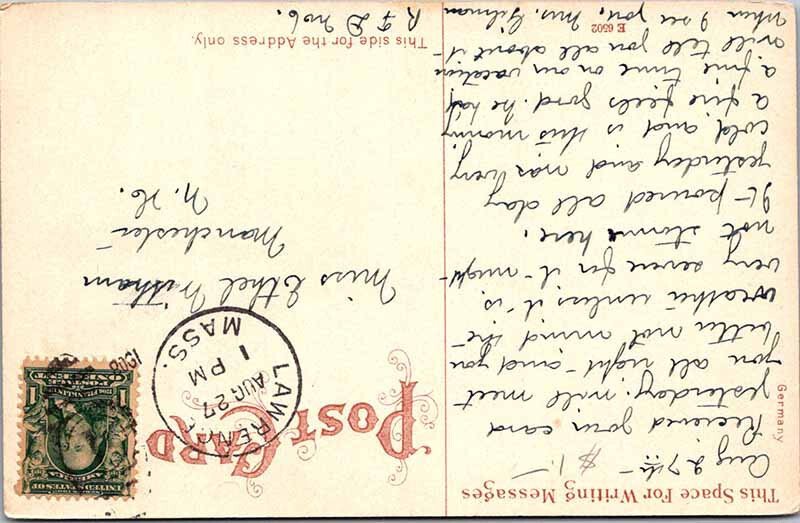 This Space For Writing Messages
$1-
Aug 27th-
Received your card
yesterday, will meet
you all right - and you
better not mind the
weather unless it is
very severe for it - might
not storm here.
It - poured all day
yesterday and was very
cold and is this morning
a fire feels good. he had
a fine time on our vacation
will tell you all about it -
when I see you, Mrs. Gilman
Germany
E 6502
POST CARD
This side for the Address only.
LAWRENCE
AUG 27
1 PM
MASS.
1908
UNITED STATES OF
AMERICA
1 1
FRANKLIN
POSTAGE
ONE CENT
Miss Ethel Witham
Manchester
N. H.
R F D No 6.